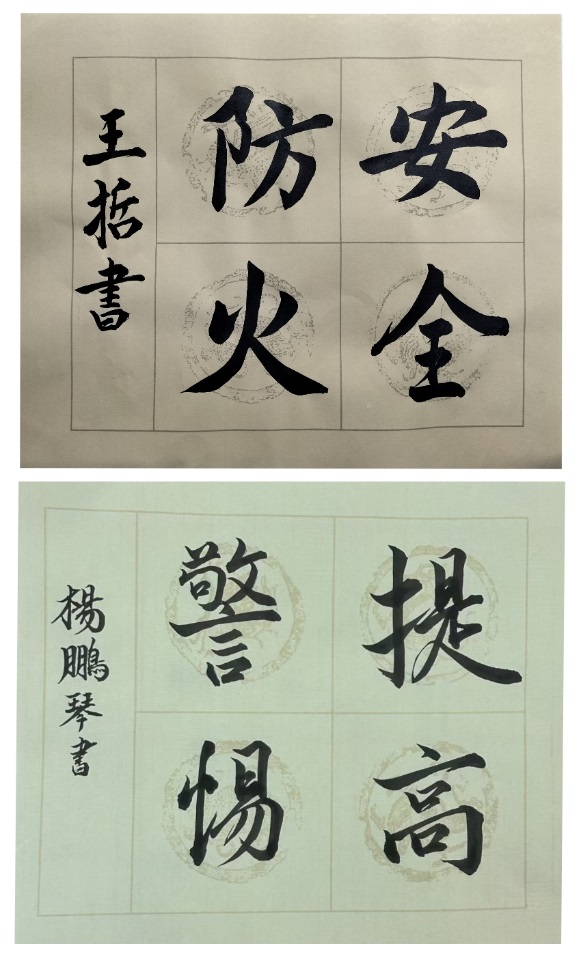 安全
防火
王哲書
提高
警惕
楊鵬琴書